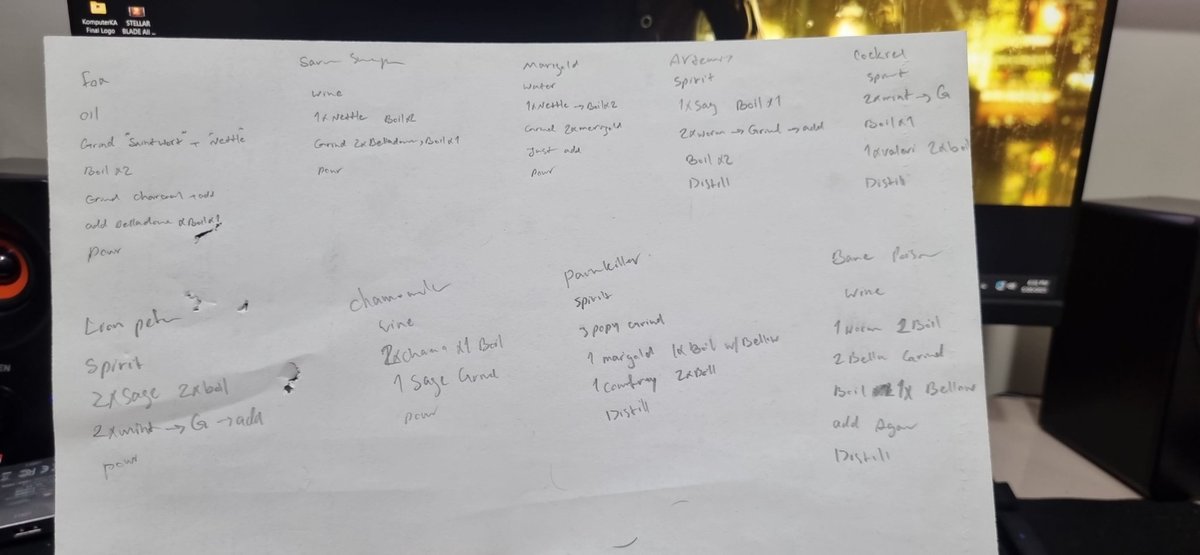 KomputerKA
Final Logo
STELLAR
BLADE All ...
Fox
oil
Grind "Saintwort" + "Nettle"
Boil x2
Grind charcoal → add
add Belladona & Boil x1
Pour
wine
1x Nettle Boil x2
Grind 2x Belladonn → Boil x1
pour
Marigold
water
1x Nettle → Boil x2
Grind 2x merigold
Just add
pour
Artemis
Spirit
1x Sag Boil x1
2x worm → Grind → add
Boil x2
Distill
Cockrel
Spirit
2x mint → G
Boil x1
1x valeri 2x boil
Distill
Spirit
2x Sage 2x boil
2x mint → G → add
pour
chamomile
wine
2x cham x1 Boil
1 Sage Grind
pour
Painkiller
Spirit
3 popy Grind
1 marigold 1x Boil w/ Bellow
1 Comfrey 2x Boil
Distill
Bane Poison
wine
1 worm 2 Boil
2 Bella Grind
Boil 1x Bellow
add Agar
Distill